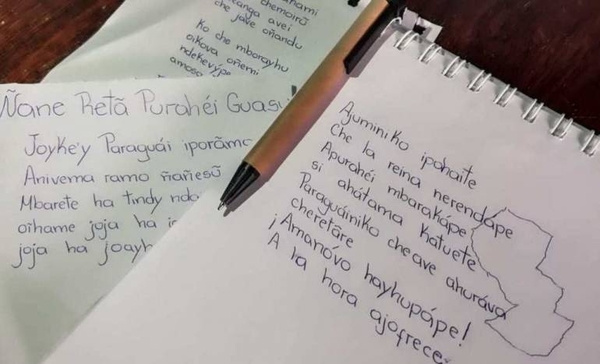 che jave oñandu
Ko che mborayhu
oikova oñemi
ndekevýpe
Ñane Retã Purahéi Guasu
Joyke'y Paraguái iporãmc
Anivema ramo ñañesũ
Mbarete ha tindy
oihame joja ha
joja ha joayh
Ajuminiko ipohaite
Che la reina nerendápe
Apurahéi mbarakápe
si ahátama katuete
Paraguáiniko cheave ahuráva
cheretãre
¡Amanóvo hayhupápe!
A la hora ajofrece